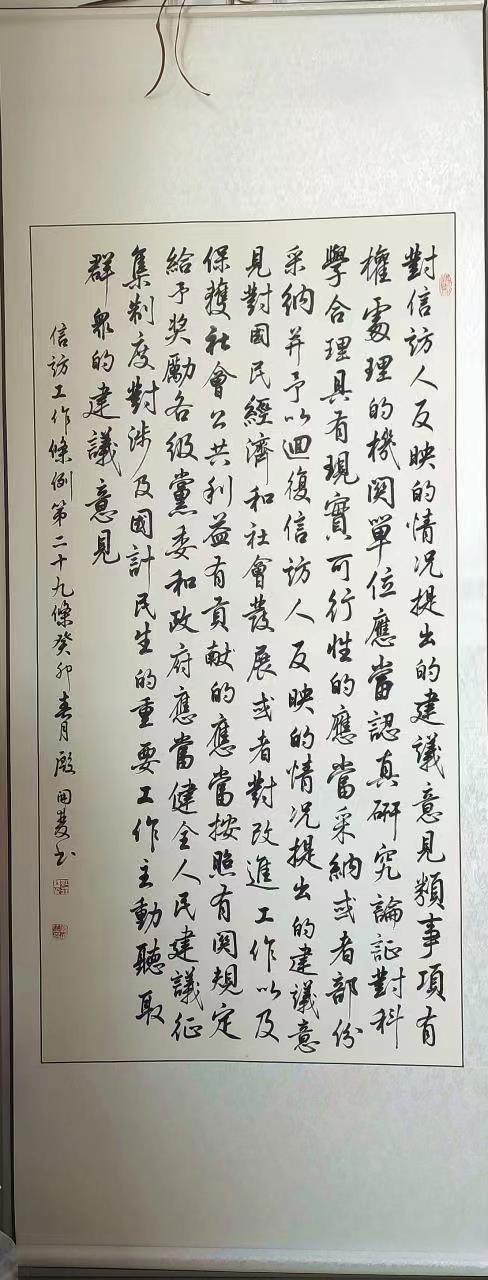 對信訪人反映的情况提出的建議意見類事項有
權處理的機関單位應當認真研究論証對科
學合理具有現實可行性的應當采納或者部份
采納并予以迴復信訪人反映的情况提出的建議意
見對國民經濟和社會發展或者對改進工作以及
保護社會公共利益有貢献的應當按照有関規定
給予奖勵各級黨委和政府應當健全人民建議征
集制度對涉及國計民生的重要工作主動聽取
群衆的建議意見
信訪工作條例第二十九條癸卯春月殷開菱书